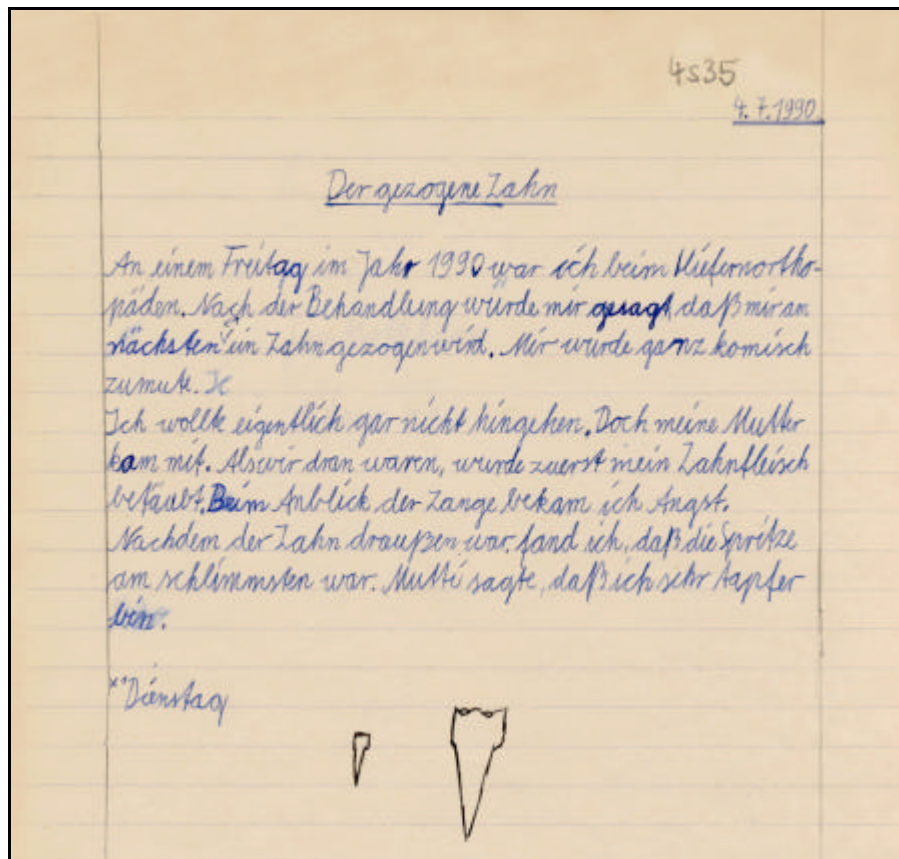 4s35
4.7.1990
Der gezogene Zahn
An einem Freitag im Jahr 1990 war ich beim Kiefernortho-
päden. Nach der Behandlung wurde mir gesagt, daß mir am
nächsten *¹ ein Zahn gezogen wird. Mir wurde ganz komisch
zumute. Ic
Ich wollte eigentlich gar nicht hingehen. Doch meine Mutter
kam mit. Als wir dran waren, wurde zuerst mein Zahnfleisch
betäubt. Beim Anblick der Zange bekam ich Angst.
Nachdem der Zahn draußen war, fand ich, daß die Spritze
am schlimmsten war. Mutti sagte, daß ich sehr tapfer
bin.
*¹ Dienstag